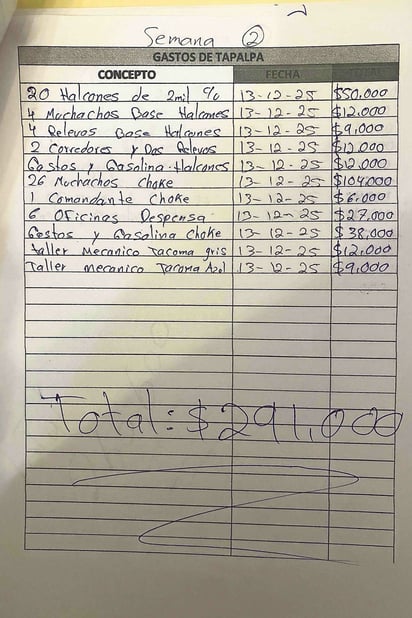 Semana 2
GASTOS DE TAPALPA
CONCEPTO FECHA
20 Halcones de 2mil % 13-12-25 $50.000
4 Muchachos Base Halcones 13-12-25 $12.000
4 Relevos Base Halcones 13-12-25 $9,000
2 Corredores y Dos Relevos 13-12-25 $12.000
Gastos y Gasolina Halcones 13-12-25 $12.000
26 Muchachos Choke 13-12-25 $104.000
1 Comandante Choke 13-12-25 $6.000
6 Oficinas Despensa 13-12-25 $27.000
Gastos y Gasolina Choke 13-12-25 $38.000
taller Mecanico Tacoma gris 13-12-25 $12.000
Taller mecanico Tacoma Azul 13-12-25 $9.000
Total: $291,000